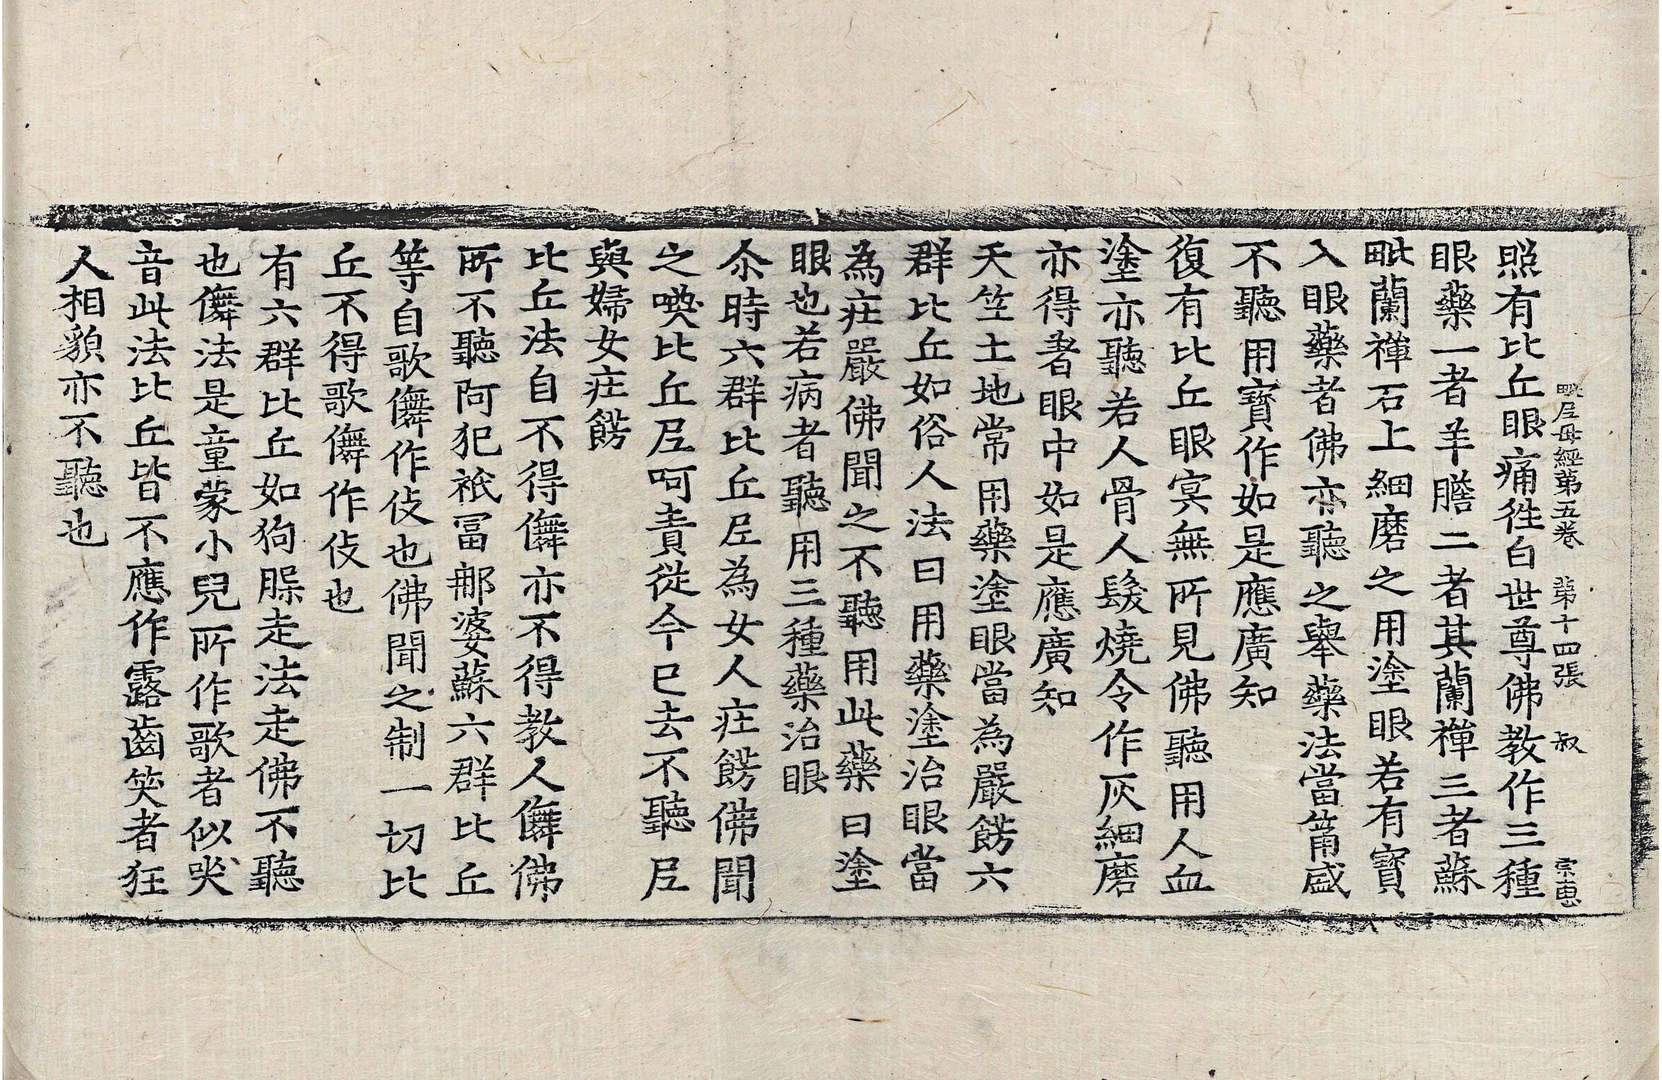 毗尼母經第五卷 第十四張 叔 宗惠
照有比丘眼痛徃白世尊佛教作三種
眼藥一者羊膽二者其蘭禪三者蘇
毗蘭禪石上細磨之用塗眼若有寶
入眼藥者佛亦聽之舉藥法當筩盛
不聽用寶作如是應廣知
復有比丘眼㝠無所見佛聽用人血
塗亦聽若人骨人髮燒令作灰細磨
亦得著眼中如是應廣知
天竺土地常用藥塗眼當為嚴餝六
群比丘如俗人法日用藥塗治眼當
為庄嚴佛聞之不聽用此藥日塗
眼也若病者聽用三種藥治眼
尒時六群比丘尼為女人庄餝佛聞
之喚比丘尼呵責從今已去不聽尼
與婦女庄餝
比丘法自不得儛亦不得教人儛佛
所不聽阿犯祇冨那婆蘇六群比丘
等自歌儛作伎也佛聞之制一切比
丘不得歌儛作伎也
有六群比丘如狗䐗走法走佛不聽
也儛法是童蒙小兒所作歌者似哭
音此法比丘皆不應作露齒笑者狂
人相貌亦不聽也